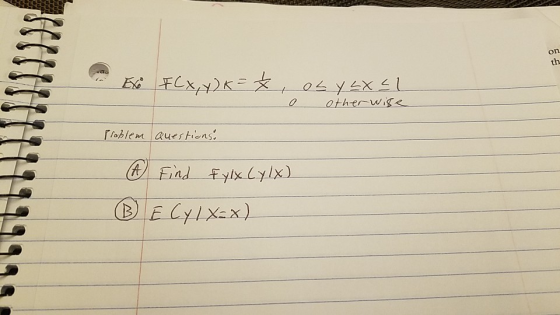 Ex: F(x,y) K = 1/x , 0 ≤ y ≤ x ≤ 1
0 otherwise
Problem Questions:
A Find Fy|x (y|x)
B E (y | X=x)
on
th